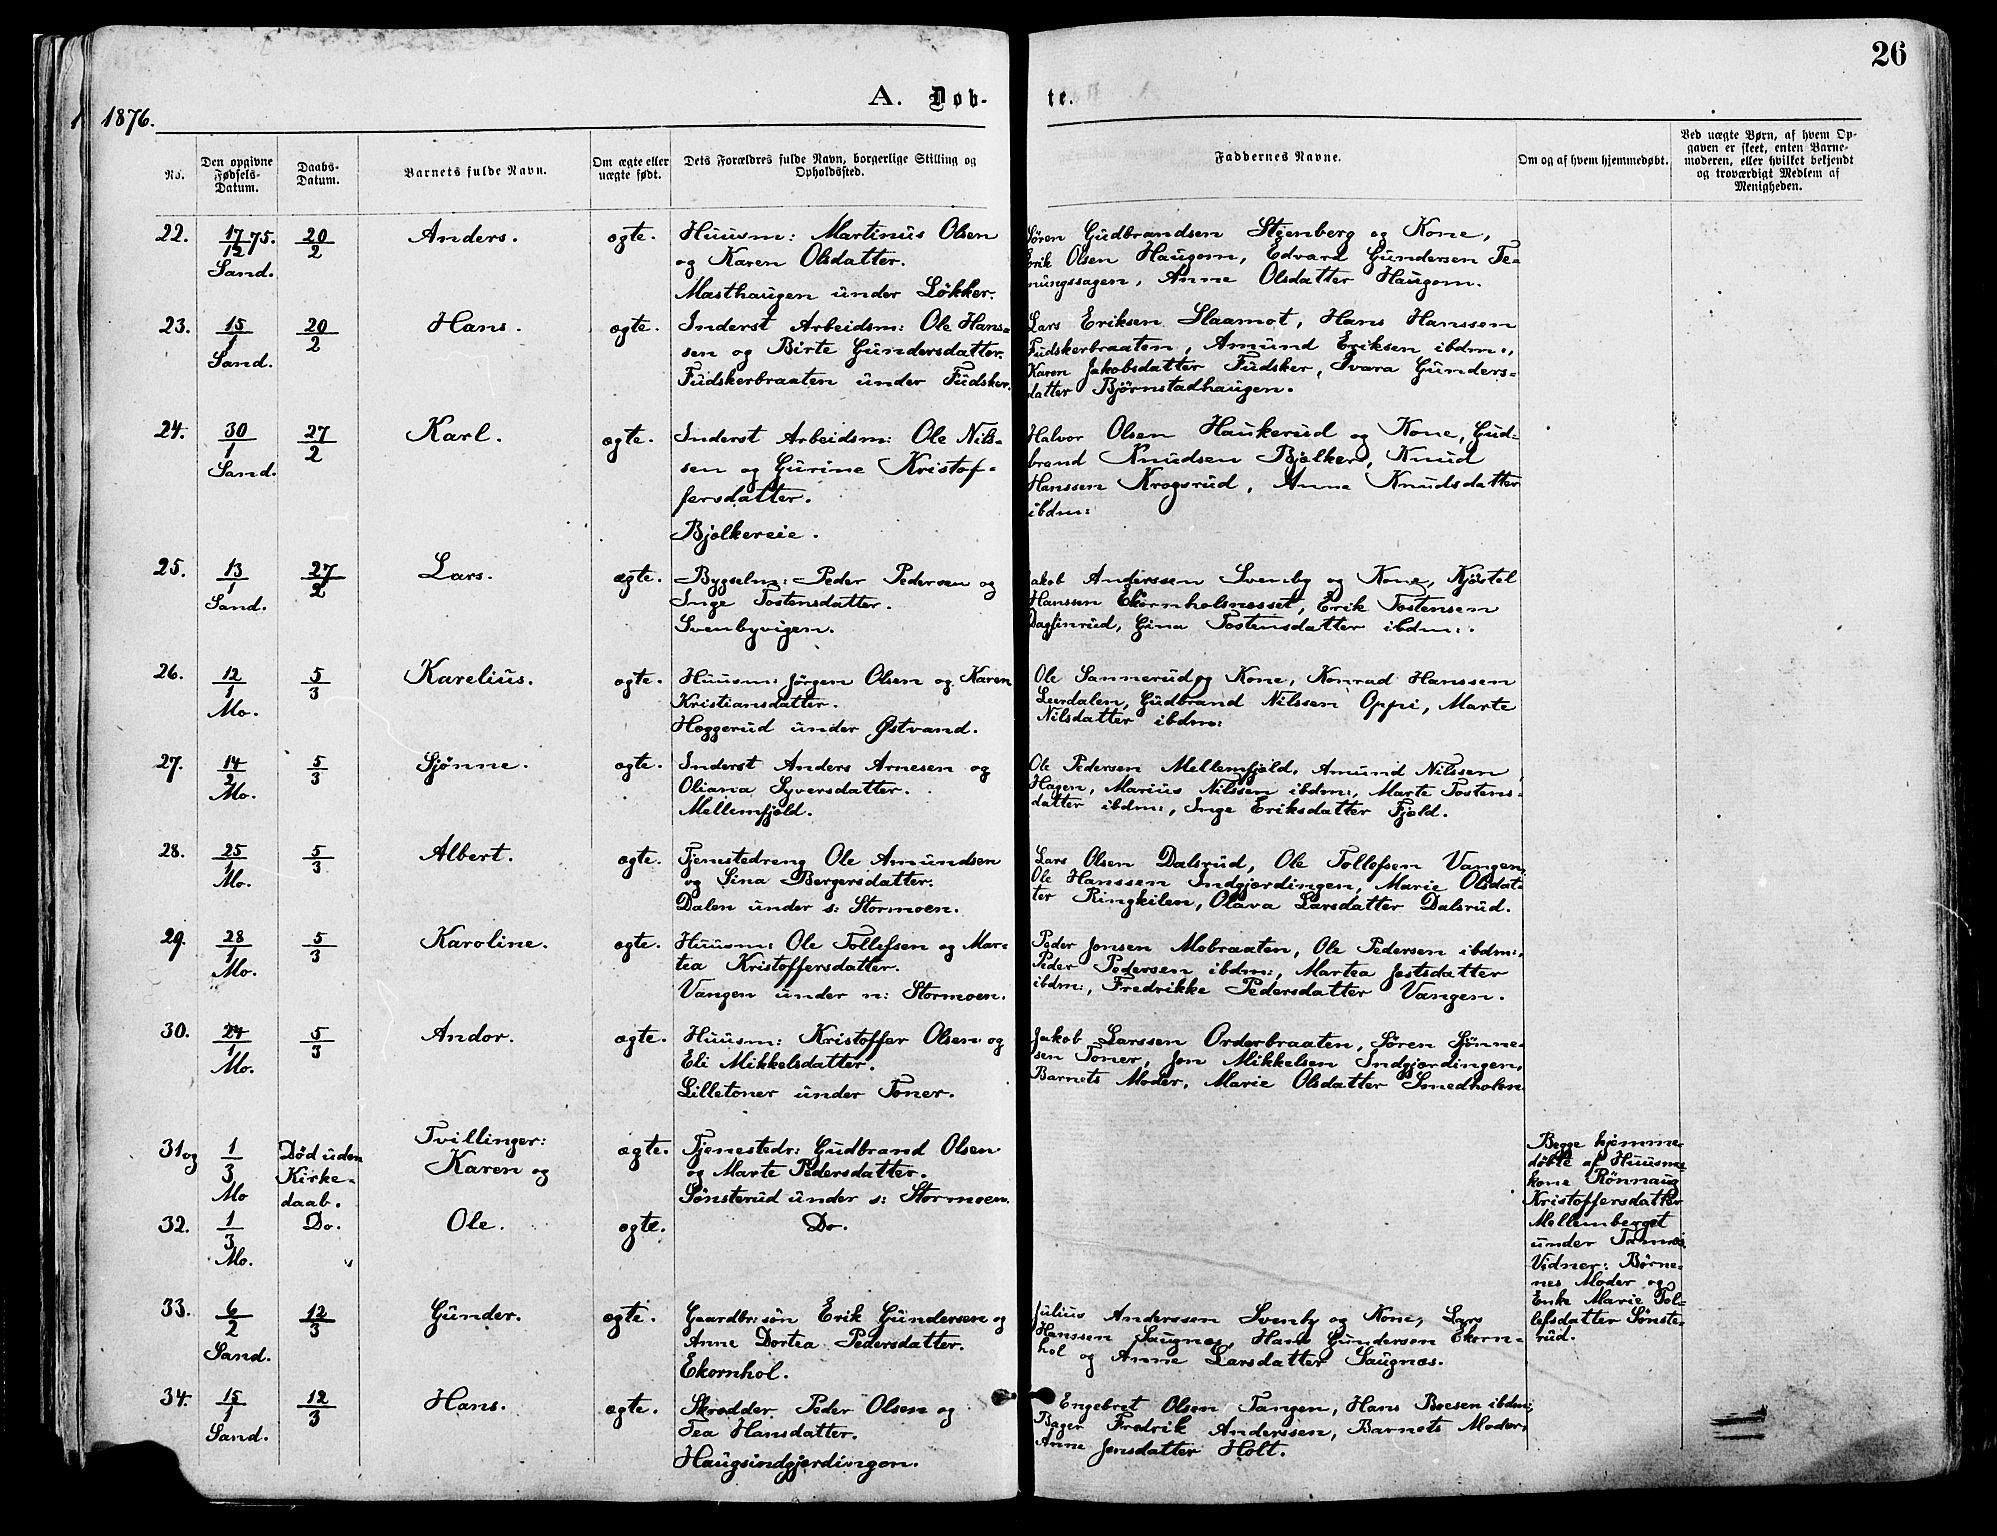 26
A. Døb-
te.
1876.
No.
Den opgivne
Fødsels-
Datum.
Daabs-
Datum.
Barnets fulde Navn.
Om ægte eller
uægte født.
Dets Forældres fulde Navn, borgerlige Stilling og
Opholdssted.
Faddernes Navne.
Om og af hvem hjemmedøbt.
Ved uægte Børn, af hvem Op-
gaven er skeet, enten Barne-
moderen, eller hvilket bekjendt
og troværdigt Medlem af
Menigheden.
22.
17/12 75.
Sand.
20/2
Anders.
ægte.
Huusm: Martinus Olsen
og Karen Olsdatter.
Masthaugen under Løkker.
Søren Gudbrandsen Stenberg og Kone,
Erik Olsen Haugom, Edvard Gundersen Te-
nungssagen, Anne Olsdatter Haugom.
23.
15/1
Sand.
20/2
Hans.
ægte.
Inderst Arbeidsm: Ole Hans-
sen og Birte Gundersdatter.
Fudskerbraaten under Fudsker.
Lars Eriksen Slaamot, Hans Hanssen
Fudskerbraaten, Amund Eriksen ibdm:,
Karen Jakobsdatter Fudsker, Ivara Gunders-
datter Bjørnstadhaugen.
24.
30/1
Sand.
27/2
Karl.
ægte.
Inderst Arbeidsm: Ole Nils-
sen og Gurine Kristof-
fersdatter.
Bjølkereie.
Halvor Olsen Haukerud og Kone, Gud-
brand Knudsen Bjølker, Knud
Hanssen Krogsrud, Anne Knudsdatter
ibdm:
25.
13/1
Sand.
27/2
Lars.
ægte.
Bygselm: Peder Pedersen og
Inge Tostensdatter.
Svenbyvigen.
Jakob Anderssen Svenby og Kone, Kjøstel
Hanssen Ekornholsnæsset, Erik Tostensen
Dagfinrud, Gina Tostensdatter ibdm:.
26.
12/1
Mo.
5/3
Karelius.
ægte.
Huusm: Jørgen Olsen og Karen
Kristiansdatter.
Heggerud under Østvand.
Ole Sannerud og Kone, Konrad Hanssen
Leerdalen, Gudbrand Nilssen Oppi, Marte
Nilsdatter ibdm:
27.
14/2
Mo.
5/3
Sjønne.
ægte.
Inderst Anders Arnesen og
Oliana Syversdatter.
Mellemfjeld.
Ole Pedersen Mellemfjeld, Amund Nilssen
Hagen, Marius Nilssen ibdm:, Marte Tostens-
datter ibdm:, Inge Eriksdatter Fjeld.
28.
25/1
Mo.
5/3
Albert.
ægte.
Tjenestedreng Ole Amundsen
og Sina Bergersdatter.
Dalen under s: Stormoen.
Lars Olsen Dalsrud, Ole Tollefsen Vangen,
Ole Hanssen Indgjerdingen, Marie Olsdat-
ter Ringkilen, Olava Larsdatter Dalsrud.
29.
28/1
Mo.
5/3
Karoline.
ægte.
Huusm: Ole Tollefsen og Mar-
tea Kristoffersdatter.
Vangen under n: Stormoen.
Peder Jonsen Mobraaten, Ole Pedersen ibdm:,
Peder Pedersen ibdm:, Martea Jostsdatter
ibdm:, Fredrikke Pedersdatter Vangen.
30.
24/1
Mo.
5/3
Andor.
ægte.
Huusm: Kristoffer Olsen og
Eli Mikkelsdatter.
Lilletoner under Toner.
Jakob Larssen Orderbraaten, Søren Sjønne-
sen Toner, Jon Mikkelsen Indgjerdingen,
Barnets Moder, Marie Olsdatter Smedholen
31 og
1/3
Mo
Død uden
Kirke-
daab.
Tvillinger:
Karen og
ægte.
Tjenestedr: Gudbrand Olsen
og Marte Pedersdatter.
Sønsterud under s: Stormoen.
Begge hjemme-
døbte af Huusm-
kone Rønnaug
Kristoffersdatter
Mellemberget
under Tannæs
Vidner: Børne-
nes Moder og
Enke Marie Tol-
lefsdatter Sønste-
rud.
32.
1/3
Mo.
Do.
Ole.
ægte.
Do.
33.
6/2
Sand.
12/3
Gunder.
ægte.
Gaardbr:søn Erik Gundersen og
Anne Dortea Pedersdatter.
Ekornhol.
Julius Anderssen Svenby og Kone, Lars
Hanssen Saugnæs, Hans Gundersen Ekorn-
hol og Anne Larsdatter Saugnæs.
34.
15/1
Sand.
12/3
Hans.
ægte.
Skrædder Peder Olsen og
Tea Hansdatter.
Haugsindgjerdingen.
Engebret Olsen Tangen, Hans Boesen ibdm:,
Bager Fredrik Anderssen, Barnets Moder,
Anne Jensdatter Holt.